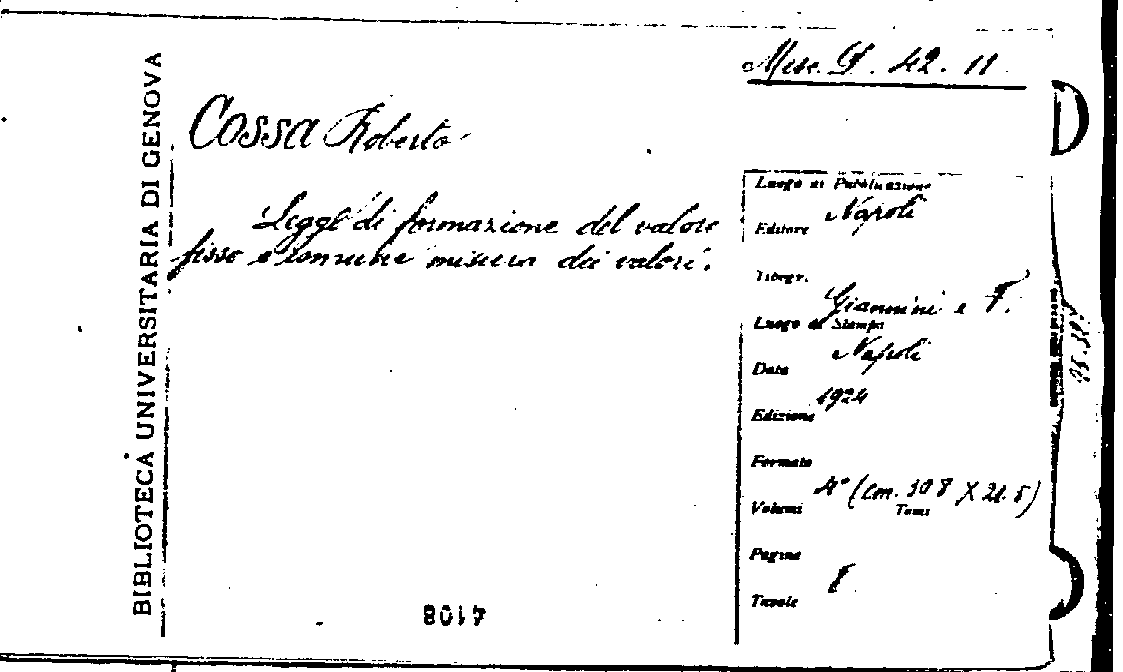 BIBLIOTECA UNIVERSITARIA DI GENOVA
Misc. D. 42. 11
Cossa Roberto
Leggi di formazione del valore
fisso e comune misura dei valori.
Luogo di Pubblicazione
Napoli
Editore
Tipogr.
Giannini e F.
Luogo di Stampa
Napoli
Data
1924
Edizione
Formato
4° (cm. 30.8 X 21.5)
Volumi
Tomi
Pagine
8
Tavole
4108